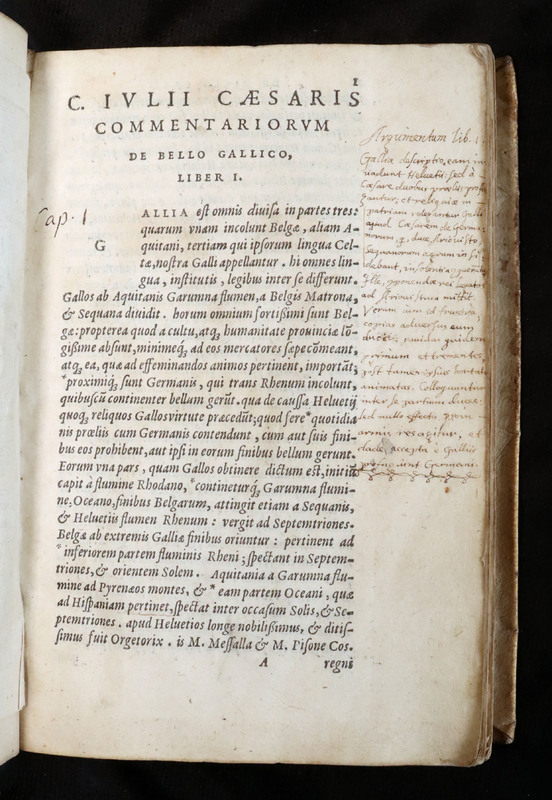 1
C. IVLII CÆSARIS
COMMENTARIORVM
DE BELLO GALLICO,
LIBER I.
Cap. 1
GALLIA est omnis diuisa in partes tres:
quarum vnam incolunt Belgæ, aliam A-
quitani, tertiam qui ipsorum lingua Cel-
tæ, nostra Galli appellantur. hi omnes lin-
gua, institutis, legibus inter se differunt.
Gallos ab Aquitanis Garumna flumen, a Belgis Matrona,
& Sequana diuidit. horum omnium fortißimi sunt Bel-
gæ: propterea quod a cultu, atq; humanitate prouinciæ lō-
gißime absunt, minimeq́; ad eos mercatores sæpe cōmeant,
atq; ea, quæ ad effeminandos animos pertinent, importāt;
*proximiq́; sunt Germanis, qui trans Rhenum incolunt,
quibuscū continenter bellum gerūt. qua de caussa Heluetij
quoq; reliquos Gallos virtute præcedūt; quod fere *quotidia
nis prœliis cum Germanis contendunt, cum aut suis fini-
bus eos prohibent, aut ipsi in eorum finibus bellum gerunt.
Eorum vna pars, quam Gallos obtinere dictum est, initiū
capit à flumine Rhodano, *contineturq́; Garumna flumi-
ne, Oceano, finibus Belgarum, attingit etiam a Sequanis,
& Heluetiis flumen Rhenum: vergit ad Septemtriones.
Belgæ ab extremis Galliæ finibus oriuntur: pertinent ad
*inferiorem partem fluminis Rheni; spectant in Septem-
triones, & orientem Solem. Aquitania a Garumna flu-
mine ad Pyrenæos montes, & *eam partem Oceani, quæ
ad Hispaniam pertinet, spectat inter occasum Solis, & Se-
ptemtriones. apud Heluetios longe nobilißimus, & ditis-
simus fuit Orgetorix. is M. Messalla & M. Pisone Cos.
A regni
Argumentum lib. 1
Galliæ descriptio, eam in
uadunt Heluetii: sed à
Cæsare duobus prœliis
et reliquiæ in
patriam
apud Cæsarem de Germa
norum
Sequanorum agrum
Ille
ad Ariouistum mittit.
Verum cum id frustra,
copias aduersus eum
ducit: pauidas quidem
primum et trementes,
post tamen ipsius
animatas. Colloquuntur
inter se partium duces:
sed nullo effectu
armis res agitur, et
clade accepta è Galliis
Germani.